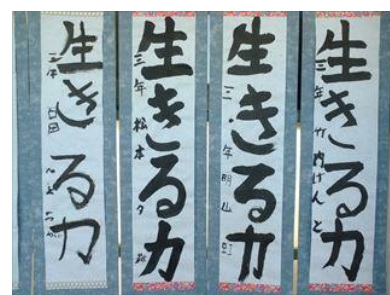 生きる力
三年 竹内けんと
生きる力
三年 明山
生きる力
三年 松本 夕
生きる力
三年